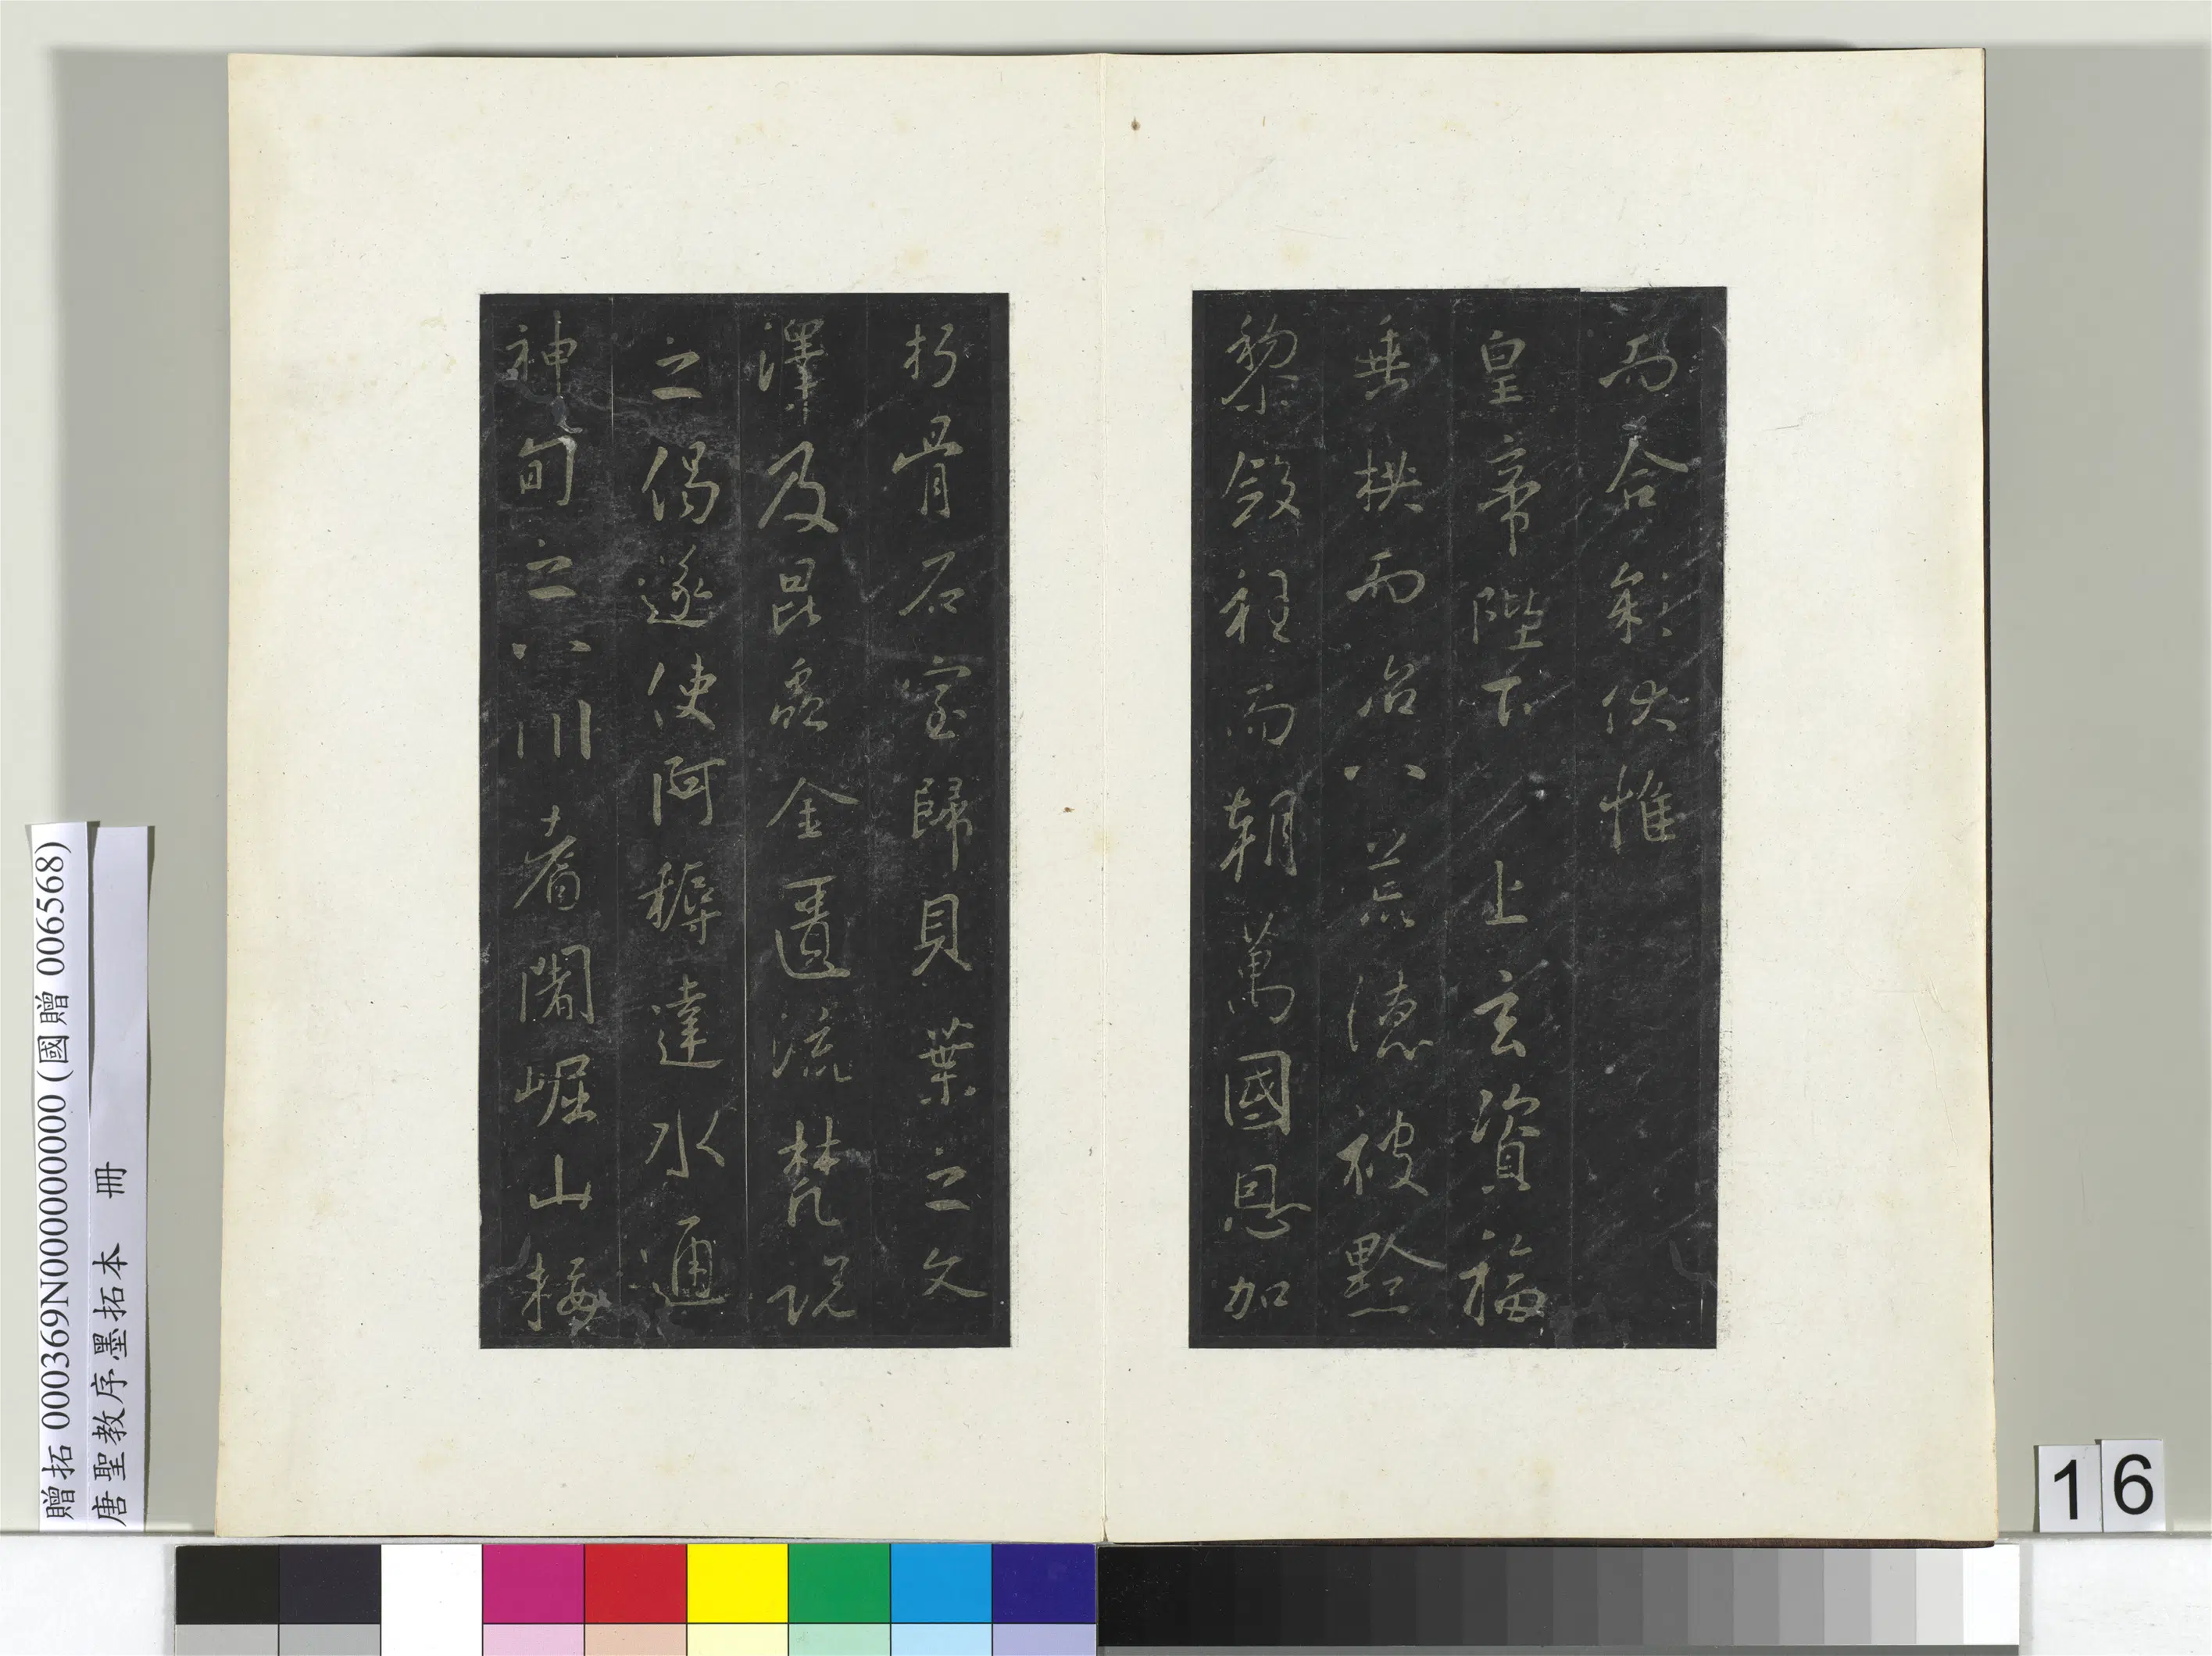 而合矣伏惟
皇帝陛下上玄資福
垂拱而治八荒德被黔
黎斂衽而朝萬國恩加
朽骨石室歸貝葉之文
澤及昆蟲金匱流梵說
之偈遂使阿耨達水通
神甸之八川耆闍崛山接
贈拓 000369N000000000 (國贈 006568)
唐聖教序墨拓本 冊
16